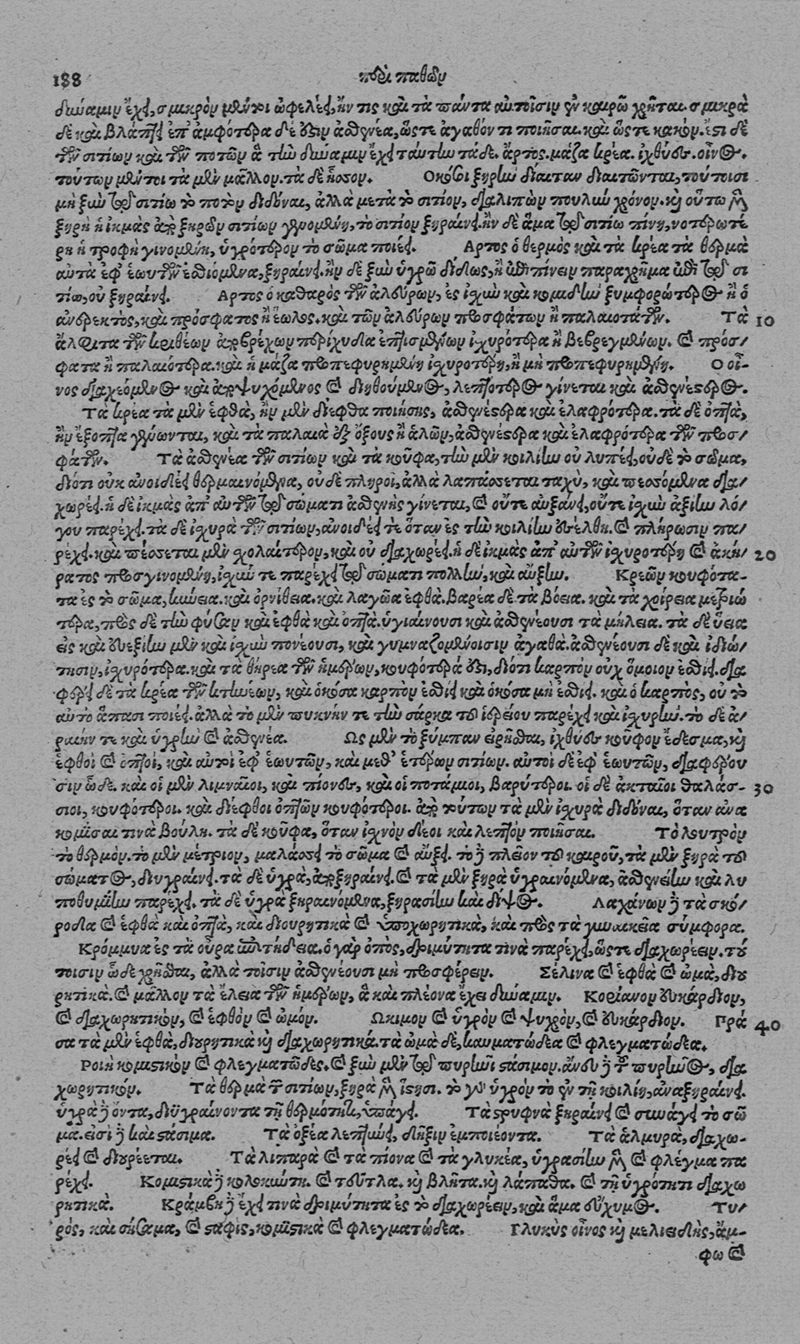 188 περὶ παθῶν
δύναμιν ἔχει, σμικρὸν μέντοι ὠφελέει, ἤν τις καὶ τὰ πάντα αὐτοῖσιν ἐν καιρῷ χρῆται. σμικρὰ
δὲ καὶ βλάπτει ἐπ' ἀμφότερα δέ ἐστιν ἀσθενέα, ὥστε ἀγαθόν τι ποιῆσαι. καὶ ὥστε κακόν. ἔτι δὲ
τῶν σιτίων καὶ τῶν ποτῶν ἃ τὴν δύναμιν ἔχει ταύτην τάδε. ἄρτος. μάζα κρέα. ἰχθύες. οἶνος.
τούτων μέντοι τὰ μὲν μᾶλλον. τὰ δὲ ἧσσον. Ὁκόσοι ξηρὴν δίαιταν διαιτῶνται, τούτοισι
μὴ ξὺν τῷ σιτίῳ τὸ ποτὸν διδόναι, ἀλλὰ μετὰ τὸ σιτίον, διαλιπὼν πουλὺν χρόνον. καὶ οὕτω μὲν
ξηρὴ ἡ ἰκμὰς ἀπὸ ξηρῶν σιτίων γινομένη, τὸ σιτίον ξηραίνει. ἢν δὲ ἅμα τῷ σιτίῳ πίνῃ, νοτερωτέ
ρη ἡ τροφὴ γινομένη, ὑγρότερον τὸ σῶμα ποιέει. Ἄρτος ὁ θερμὸς καὶ τὰ κρέα τὰ θερμὰ
αὐτὰ ἐφ' ἑωυτῶν ἐσθιόμενα, ξηραίνει. ἢν δὲ ξὺν ὑγρῷ διδῷς, ἢ ἐπιπίνειν παραχρῆμα ἐπὶ τῷ σι
τίῳ, οὐ ξηραίνει. Ἄρτος ὁ καθαρὸς τῶν ἀλεύρων, ἐς ἰσχὺν καὶ κομιδὴν ξυμφορώτερος ἢ ὁ
ἀνέρεκτος, καὶ πρόσφατος ἢ ἕωλος. καὶ τῶν ἀλεύρων προσφάτων ἢ παλαιοτάτων. Τὰ 10
ἄλφιτα τῶν κριθέων ἀποβρέχων περίχυδα ἐπτισμένων ἰσχυρότερα ἢ βεβρεγμένων. καὶ πρόσ/
φατα ἢ παλαιότερα. καὶ ἡ μάζα προπεφυρημένη ἰσχυροτέρη, ἢ μὴ προπεφυρημένη. Ὁ οἶ-
νος διαχεόμενος καὶ ἀποψυχόμενος καὶ διηθούμενος, λεπτότερος γίνεται καὶ ἀσθενέστερος.
Τὰ κρέα τὰ μὲν ἑφθὰ, ἢν μὲν δίεφθα ποιήσῃς, ἀσθενέστερα καὶ ἐλαφρότερα. τὰ δὲ ὀπτὰ,
ἢν ἔξοπτα γένωνται, καὶ τὰ παλαιὰ ἐξ ὄξους ἢ ἁλῶν, ἀσθενέστερα καὶ ἐλαφρότερα τῶν προσ/
φάτων. Τὰ ἀσθενέα τῶν σιτίων καὶ τὰ κοῦφα, τὴν μὲν κοιλίην οὐ λυπέει, οὐδὲ τὸ σῶμα,
διότι οὐκ ἀνοιδέει θερμαινόμενα, οὐδὲ πληροῖ, ἀλλὰ λαπάσσεται ταχὺ, καὶ πεσσόμενα δια/
χωρέει. ἡ δὲ ἰκμὰς ἀπ' αὐτῶν τῷ σώματι ἀσθενὴς γίνεται, καὶ οὔτε αὐξάνει, οὔτε ἰσχὺν ἀξίην λό/
γου παρέχει. τὰ δὲ ἰσχυρὰ τῶν σιτίων, ἀνοιδέει τε ὅταν ἐς τὴν κοιλίην ἐσέλθῃ. καὶ πλήρωσιν πα/
ρέχει. καὶ πέσσεται μὲν σχολαίτερον, καὶ οὐ διαχωρέει. ἡ δὲ ἰκμὰς ἀπ' αὐτῶν ἰσχυροτέρη καὶ ἀκή/ 20
ρατος προσγινομένη, ἰσχύν τε παρέχει τῷ σώματι πολλὴν, καὶ αὔξην. Κρεῶν κουφότα-
τα ἐς τὸ σῶμα, κύνεια. καὶ ὀρνίθεια. καὶ λαγῶα ἑφθά. βαρέα δὲ τὰ βόεια. καὶ τὰ χοίρεια μετριώ
τερα, πρὸς δὲ τὴν φύσιν καὶ ἑφθὰ καὶ ὀπτά. ὑγιαίνουσι καὶ ἀσθενέουσι τὰ μήλεια. τὰ δὲ ὕεια
εἰς καὶ εὐεξίην μὲν καὶ ἰσχὺν πονέουσι, καὶ γυμναζομένοισιν ἀγαθά. ἀσθενέουσι δὲ καὶ ἰδιώ/
τησιν, ἰσχυρότερα. καὶ τὰ θήρεα τῶν ἡμέρων, κουφότερά ἐστι, διότι καρπὸν οὐχ ὅμοιον ἐσθίει. δια
φέρει δὲ τὰ κρέα τῶν κτηνέων, καὶ ὁκόσα καρπὸν ἐσθίει καὶ ὁκόσα μὴ ἐσθίει. καὶ ὁ καρπὸς, οὐ τὸ
αὐτὸ ἅπασι ποιέει. ἀλλὰ τὸ μὲν πυκνήν τε τὴν σάρκα τοῦ ἱερείου παρέχει καὶ ἰσχυρήν. τὸ δὲ ἀ/
ραιήν τε καὶ ὑγρὴν καὶ ἀσθενέα. Ὡς μὲν τὸ ξύμπαν εἰρῆσθαι, ἰχθύες κοῦφον ἔδεσμα, καὶ
ἑφθοὶ καὶ ὀπτοὶ, καὶ αὐτοὶ ἐφ' ἑωυτῶν, καὶ μεθ' ἑτέρων σιτίων. αὐτοὶ δὲ ἐφ' ἑωυτῶν, διαφέρου
σιν ὧδε. καὶ οἱ μὲν λιμναῖοι, καὶ πίονες, καὶ οἱ ποτάμιοι, βαρύτεροι. οἱ δὲ ἀκταῖοι θαλάσ- 30
σιοι, κουφότεροι. καὶ δίεφθοι ὀπτῶν κουφότεροι. ἀπὸ τούτων τὰ μὲν ἰσχυρὰ διδόναι, ὅταν ἀνα
κομίσαι τινὰ βούλῃ. τὰ δὲ κοῦφα, ὅταν ἰσχνὸν δέοι καὶ λεπτὸν ποιῆσαι. Τὸ λουτρὸν
τὸ θερμόν. τὸ μὲν μέτριον, μαλάσσει τὸ σῶμα καὶ αὔξει. τὸ δὲ πλεῖον τοῦ καιροῦ, τὰ μὲν ξηρὰ τοῦ
σώματος, διυγραίνει. τὰ δὲ ὑγρὰ, ἀποξηραίνει. καὶ τὰ μὲν ξηρὰ ὑγραινόμενα, ἀσθενείην καὶ λυ
ποθυμίην παρέχει. τὰ δὲ ὑγρὰ ξηραινόμενα, ξηρασίην καὶ δίψος. Λαχάνων δὲ τὰ σκό/
ροδα καὶ ἑφθὰ καὶ ὀπτὰ, καὶ διουρητικὰ καὶ ὑποχωρητικὰ, καὶ πρὸς τὰ γυναικεῖα σύμφορα.
Κρόμμυα ἐς τὰ οὖρα ἐπιτήδεια. ὁ γὰρ ὀπὸς, δριμύτητα τινὰ παρέχει, ὥστε διαχωρέειν. τού
τοισιν ὧδε χρῆσθαι, ἀλλὰ τοῖσιν ἀσθενέουσι μὴ προσφέρειν. Σέλινα καὶ ἑφθὰ καὶ ὠμὰ, διου
ρητικά. καὶ μᾶλλον τὰ ἕλεια τῶν ἡμέρων, ἃ καὶ πλέονα ἔχει δύναμιν. Κορίανον εὐκάρδιον,
καὶ διαχωρητικὸν, καὶ ἑφθὸν καὶ ὠμόν. Ὤκιμον καὶ ὑγρὸν καὶ ψυχρὸν, καὶ εὐκάρδιον. Πρά 40
σα τὰ μὲν ἑφθὰ, διουρητικὰ καὶ διαχωρητικά. τὰ ὠμὰ δὲ, καυματώδεα καὶ φλεγματώδεα.
Ῥοιὴ κομιστικὸν καὶ φλεγματῶδες. καὶ ξὺν μὲν τῷ πυρῆνι στάσιμον. ἄνευ δὲ τοῦ πυρῆνος, δια
χωρητικόν. Τὰ θερμὰ τῶν σιτίων, ξηρὰ μὲν ἵστησι. τὸ γὰρ ὑγρὸν τὸ ἐν τῇ κοιλίῃ, ἀναξηραίνει.
ὑγρὰ δὲ ὄντα, διϋγραίνοντα τῇ θερμότητι, ὑπάγει. Τὰ στρυφνὰ ξηραίνει καὶ συνάγει τὸ σῶ
μα. εἰσὶ δὲ καὶ στάσιμα. Τὰ ὀξέα λεπτύνει, δῆξιν ἐμποιέοντα. Τὰ ἁλμυρὰ, διαχω-
ρέει καὶ διουρέεται. Τὰ λιπαρὰ καὶ τὰ πίονα καὶ τὰ γλυκέα, ὑγρασίην μὲν καὶ φλέγμα πα
ρέχει. Κομιστικὰ δὲ κολοκύντη. καὶ τεῦτλα. καὶ βλῆτα. καὶ λάπαθα. καὶ τῇ ὑγρότητι διαχω
ρητικά. Κράμβη δὲ ἔχει τινὰ δριμύτητα ἐς τὸ διαχωρέειν, καὶ ἅμα εὔχυμος. Τυ/
ρὸς, καὶ σήσαμα, καὶ σταφὶς, κομιστικὰ καὶ φλεγματώδεα. Γλυκὺς οἶνος καὶ μελιειδὴς, ἄμ-
φω καὶ